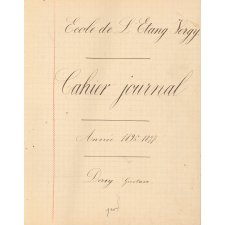 Ecole de L'Etang Vergy
Cahier journal
Année 1896-1897
Dessy Gustave